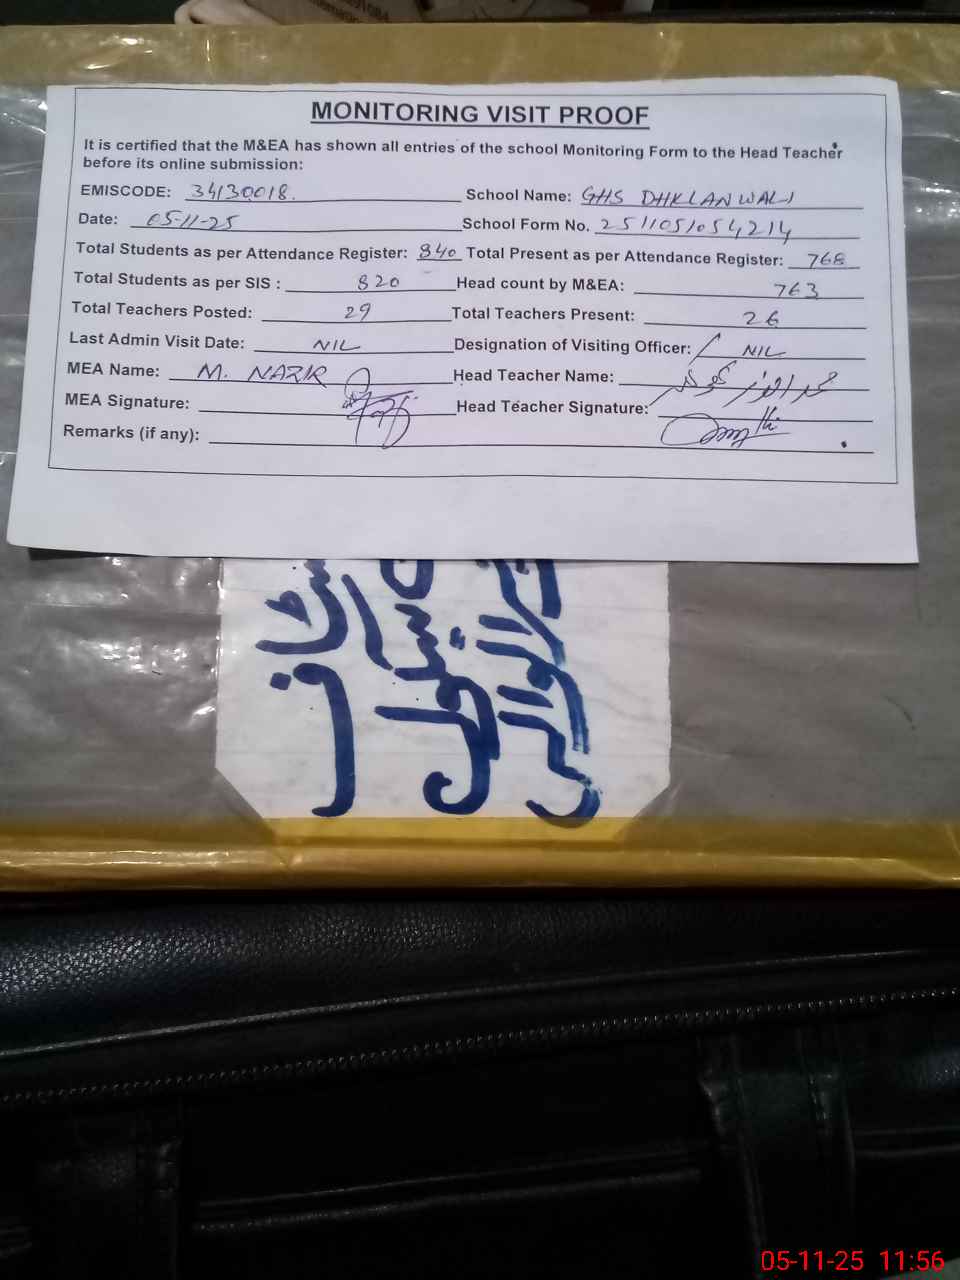 MONITORING VISIT PROOF
It is certified that the M&EA has shown all entries of the school Monitoring Form to the Head Teacher
before its online submission:
EMISCODE: 34130018. School Name: GHS DHKLANWALI
Date: 05-11-25 School Form No. 2511051054214
Total Students as per Attendance Register: 840 Total Present as per Attendance Register: 768
Total Students as per SIS : 820 Head count by M&EA: 763
Total Teachers Posted: 29 Total Teachers Present: 26
Last Admin Visit Date: NIL Designation of Visiting Officer: NIL
MEA Name: M. NAZIR Head Teacher Name:
MEA Signature: Head Teacher Signature:
Remarks (if any):
05-11-25 11:56